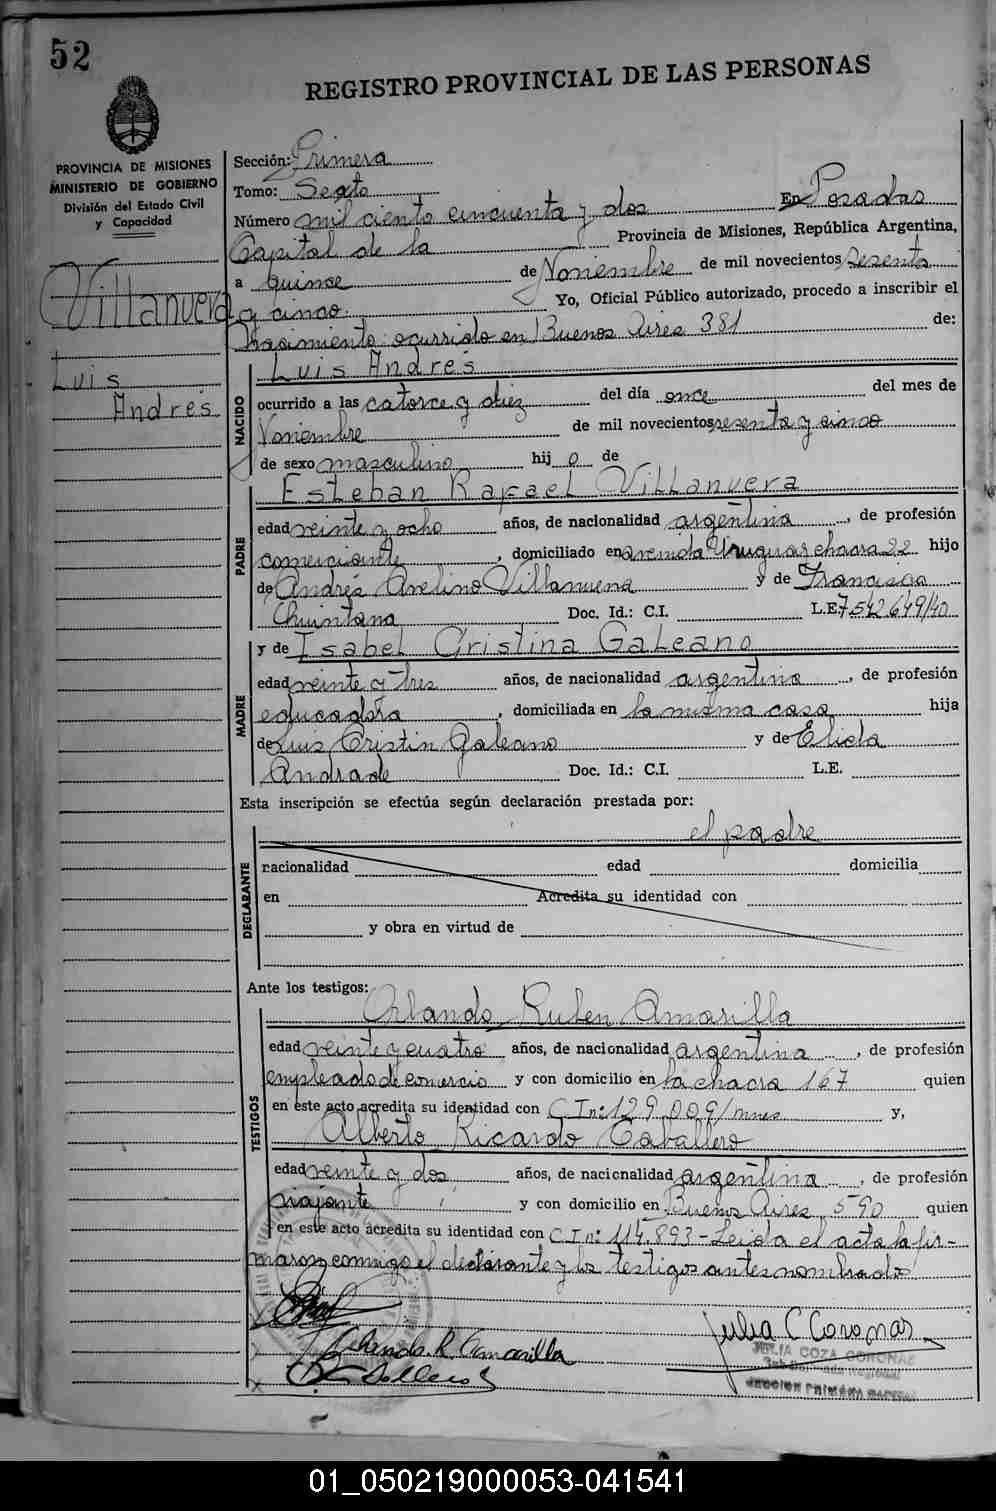 52
REGISTRO PROVINCIAL DE LAS PERSONAS
PROVINCIA DE MISIONES
MINISTERIO DE GOBIERNO
División del Estado Civil
y Capacidad
Villanueva
Luis
Andrés
Sección: Primera
Tomo: Sexto
Número mil ciento cincuenta y dos En Posadas
Capital de la Provincia de Misiones, República Argentina,
a quince de Noviembre de mil novecientos sesenta
y cinco. Yo, Oficial Público autorizado, procedo a inscribir el
Nacimiento ocurrido en Buenos Aires 381 de:
NACIDO
Luis Andrés
ocurrido a las catorce y diez del día once del mes de
Noviembre de mil novecientos sesenta y cinco
de sexo masculino hij o de
PADRE
Esteban Rafael Villanueva
edad veinte y ocho años, de nacionalidad argentina, de profesión
comerciante, domiciliado en avenida Uruguay chacra 22 hijo
de Andrés Avelino Villanueva y de Francisca
Quintana Doc. Id.: C.I. L.E. 7.542.649/40
MADRE
y de Isabel Cristina Galeano
edad veinte y tres años, de nacionalidad argentina, de profesión
educadora, domiciliada en la misma casa hija
de Luis Cristin Galeano y de Elida
Andrade Doc. Id.: C.I. L.E.
Esta inscripción se efectúa según declaración prestada por:
el padre
DECLARANTE
nacionalidad edad domicilia
en Acredita su identidad con
y obra en virtud de
Ante los testigos:
TESTIGOS
Orlando Ruben Amarilla
edad veinte y cuatro años, de nacionalidad argentina, de profesión
empleado de comercio y con domicilio en la chacra 167 quien
en este acto acredita su identidad con C.I nº 129.009/mnes y,
Alberto Ricardo Caballero
edad veinte y dos años, de nacionalidad argentina, de profesión
y con domicilio en Buenos Aires 590 quien
en este acto acredita su identidad con C.I nº 114.893 - Leida el acta la fir-
maron conmigo el declarante y los testigos antes nombrados
Orlando R. Amarilla
Julia C Coronas
JULIA COZA CORONAS
SECCION PRIMERA CAPITAL
01_050219000053-041541